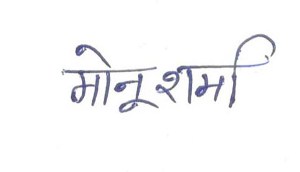 मोनू शर्मा